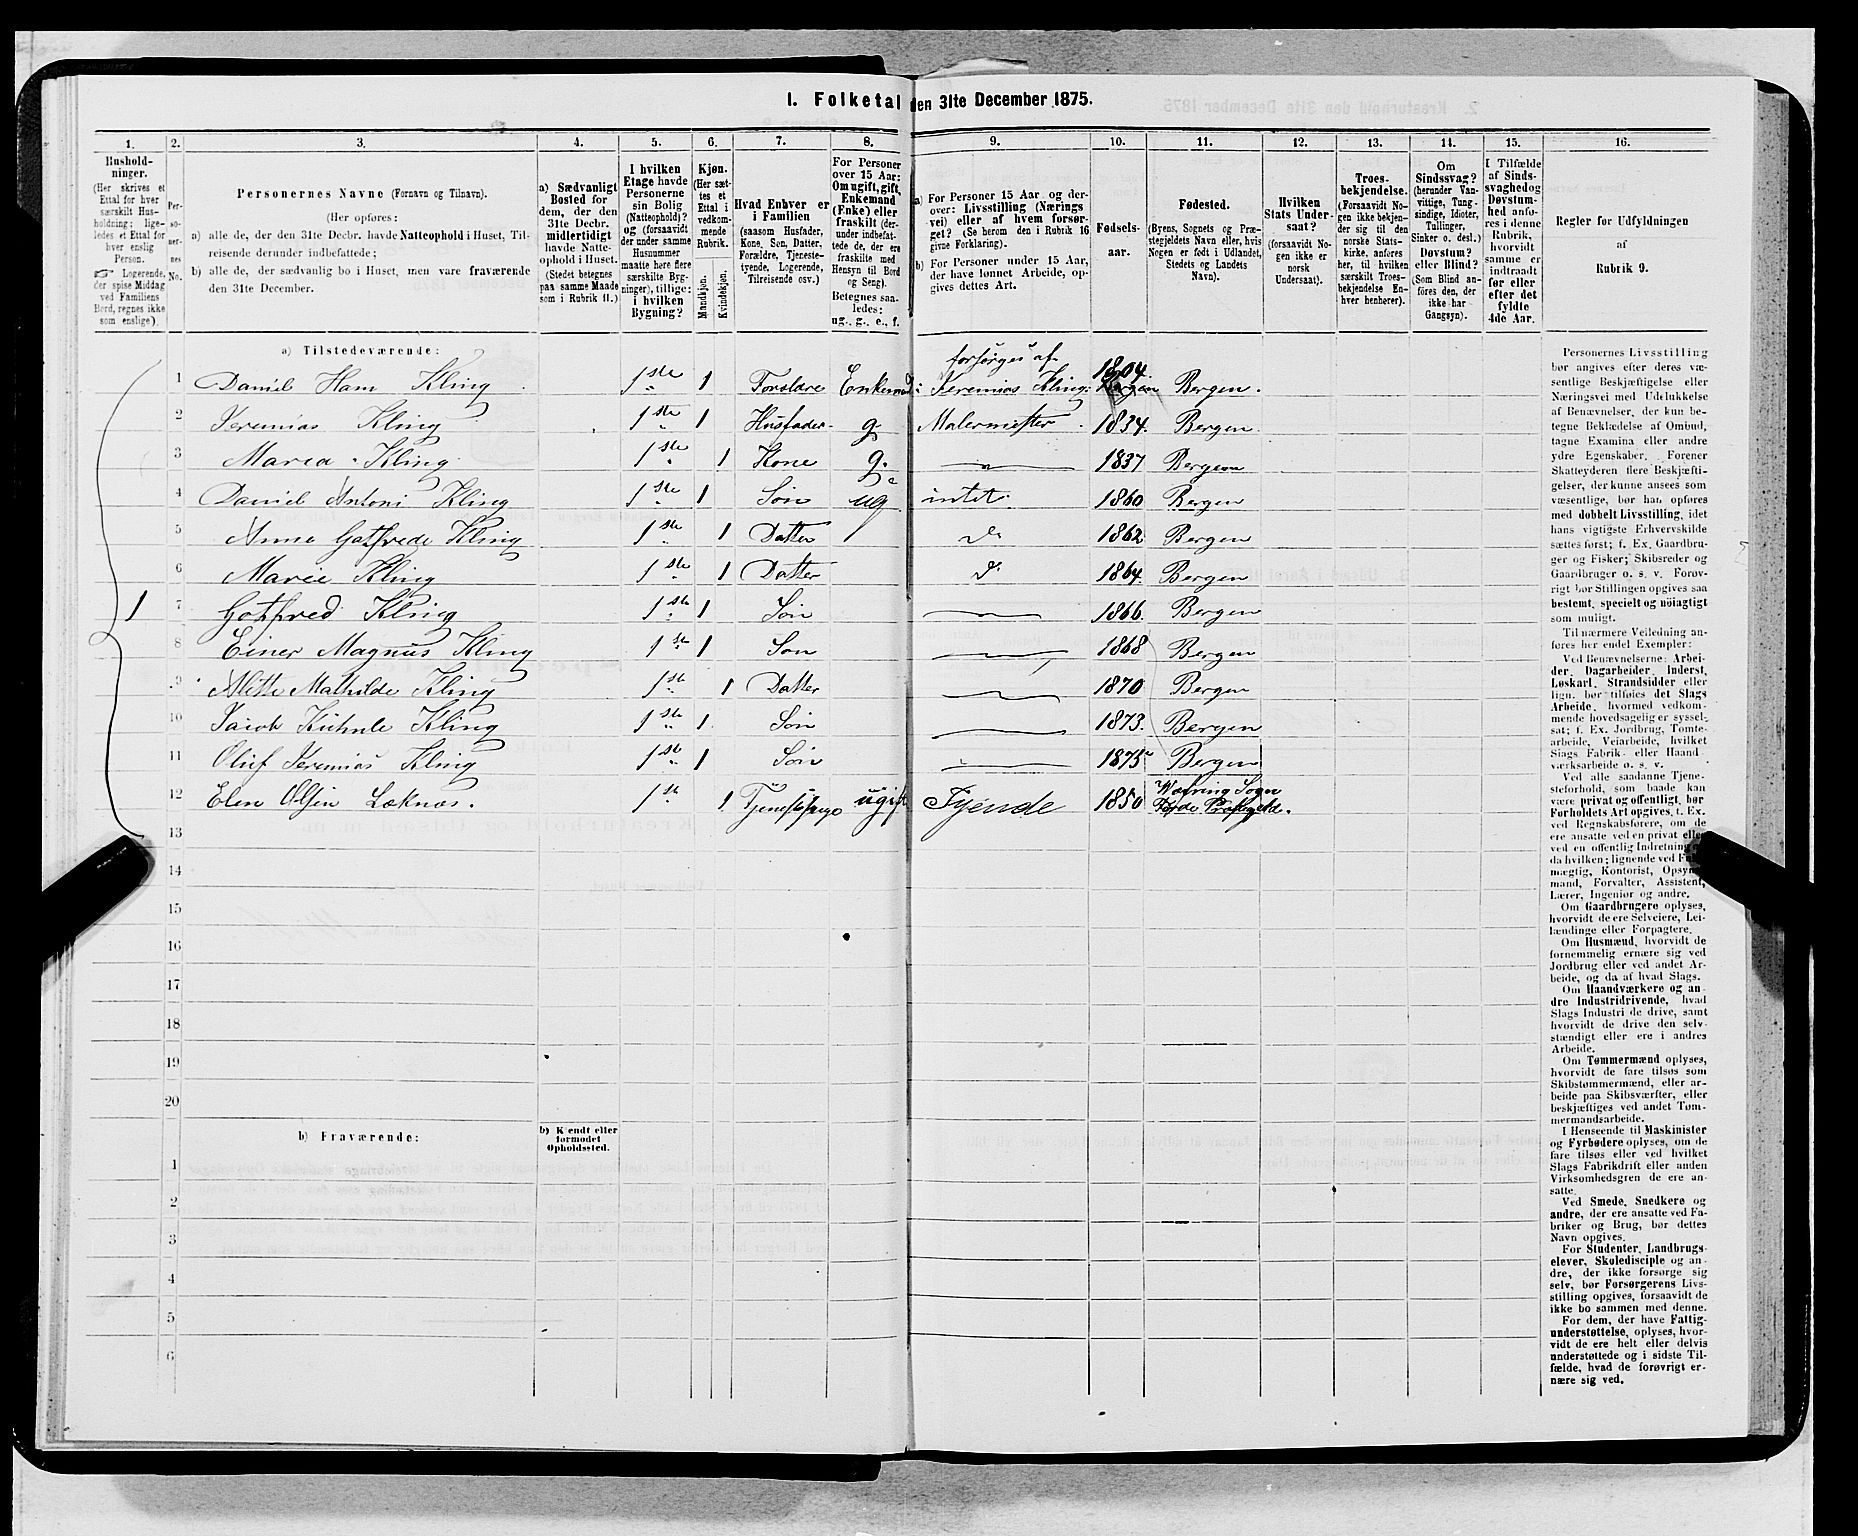 I. Folketal den 31te December 1875.
1. 2. 3. 4. 5. 6. 7. 8. 9. 10. 11. 12. 13. 14. 15. 16.
Hushold-
ninger.
(Her skrives et
Ettal for hver
særskilt Hus-
holdning; lige-
ledes et Ettal for
hver enslig
Person.
☞ Logerende,
der spise Middag
ved Familiens
Bord, regnes ikke
som enslige).
Per-
so-
ner-
nes
No.
Personernes Navne (Fornavn og Tilnavn).
(Her opføres:
a) alle de, der den 31te Decbr. havde Natteophold i Huset, Til-
reisende derunder indbefattede;
b) alle de, der sædvanlig bo i Huset, men vare fraværende
den 31te December.
a) Sædvanligt
Bosted for
dem, der den
31te Decbr.
midlertidigt
havde Natte-
ophold i Huset.
(Stedet betegnes
paa samme Maade
som i Rubrik 11.)
I hvilken
Etage havde
Personerne
sin Bolig
(Natteophold)?
og (forsaavidt
der under samme
Husnummer
maatte høre flere
særskilte Byg-
ninger), tillige:
i hvilken
Bygning?
Kjøn.
(Her sæt-
tes et
Ettal i
vedkom-
mende
Rubrik.
Mandkjøn.
Kvindekjøn.
Hvad Enhver er
i Familien
(saasom Husfader,
Kone, Søn, Datter,
Forældre, Tjeneste-
tyende, Logerende,
Tilreisende osv.)
For Personer
over 15 Aar:
Om ugift, gift,
Enkemand
(Enke) eller
fraskilt (der-
under indbefat-
tede de, der ere
fraskilte med
Hensyn til Bord
og Seng).
Betegnes saa-
ledes:
ug., g., e., f.
a) For Personer 15 Aar og der-
over: Livsstilling (Nærings
vei) eller af hvem forsør-
get? (Se herom den i Rubrik 16
givne Forklaring).
b) For Personer under 15 Aar,
der have lønnet Arbeide, op-
gives dettes Art.
Fødsels-
aar.
Fødested.
(Byens, Sognets og Præ-
stegjeldets Navn eller, hvis
Nogen er født i Udlandet,
Stedets og Landets
Navn).
Hvilken
Stats Under-
saat?
(forsaavidt No-
gen ikke er
norsk
Undersaat).
Troes-
bekjendelse.
(Forsaavidt No-
gen ikke bekjen-
der sig til den
norske Stats-
kirke, anføres
her, til hvilken
særskilt Troes-
bekjendelse En-
hver henhører).
Om
Sindssvag?
(herunder Van-
vittige, Tung-
sindige, Idioter,
Tullinger,
Sinker o. desl.)
Døvstum?
eller Blind?
(Som Blind an-
føres den, der
ikke har
Gangsyn).
I Tilfælde
af Sinds-
svaghed og
Døvstum-
hed anfø-
res i denne
Rubrik,
hvorvidt
samme er
indtraadt
før eller
efter det
fyldte
4de Aar.
Regler for Udfyldningen
af
Rubrik 9.
a) Tilstedeværende:
1 Daniel Ham Kling 1ste 1 Forældre Enkemand forsørges af Jeremias Kling. 1804. Bergen.
2 Jeremias Kling 1ste 1 Husfader g Malermester 1834. Bergen.
3 Maria Kling 1ste 1 Kone g. 1837 Bergen
4 Daniel Antoni Kling 1ste 1 Søn ug intet. 1860 Bergen
5 Anna Gotfrede Kling 1ste 1 Datter do 1862 Bergen
6 Marie Kling 1ste 1 Datter do 1864. Bergen
1 7 Gotfred Kling 1ste 1 Søn 1866. Bergen
8 Einer Magnus Kling 1ste 1 Søn 1868 Bergen
9 Alette Mathilde Kling 1ste 1 Datter 1870 Bergen
10 Jacob Kuhnle Kling 1ste 1 Søn 1873. Bergen
11 Oluf Jeremias Kling 1ste 1 Søn 1875 Bergen
12 Elen Olsen Løknæs. 1ste 1 ugift Tyende 1850 Sogn
13
14
15
16
17
18
19
20
b) Fraværende:
b) Kjendt eller
formodet
Opholdssted.
1
2
3
4
5
6
Personernes Livsstilling
bør angives efter deres væ-
sentlige Beskjæftigelse eller
Næringsvei med Udelukkelse
af Benævnelser, der kun be-
tegne Beklædelse af Ombud,
tagne Examina eller andre
ydre Egenskaber. Forener
Skatteyderen flere Beskjæfti-
gelser, der kunne ansees som
væsentlige, bør han opføres
med dobbelt Livsstilling, idet
hans vigtigste Erhvervskilde
sættes først; f. Ex. Gaardbru-
ger og Fisker; Skibsreder og
Gaardbruger o. s. v. Forøv-
rigt bør Stillingen opgives saa
bestemt, specielt og nøiagtigt
som muligt.
Til nærmere Veiledning an-
føres her endel Exempler:
Ved Benævnelserne: Arbei-
der, Dagarbeider, Inderst,
Løskarl, Strandsidder eller
lign. bør tilføies det Slags
Arbeide, hvormed vedkom-
mende hovedsagelig er syssel-
sat; f. Ex. Jordbrug, Tomte-
arbeide, Veiarbeide, hvilket
Slags Fabrik- eller Haand
værksarbeide o. s. v.
Ved alle saadanne Tjene-
steforhold, som baade kan
være privat og offentlig, bør
Forholdets Art opgives, f. Ex.
ved Regnskabsførere, om de
ere ansatte ved en privat eller
ved en offentlig Indretning
da hvilken; lignende ved
mægtig, Kontorist, Opsyns-
mand, Forvalter, Assistent,
Lærer, Ingeniør og andre.
Om Gaardbrugere oplyses,
hvorvidt de ere Selveiere, Lei-
lændinge eller Forpagtere.
Om Husmænd, hvorvidt de
fornemmelig ernære sig ved
Jordbrug eller ved andet Ar-
beide, og da af hvad Slags.
Om Haandværkere og an-
dre Industridrivende, hvad
Slags Industri de drive, samt
hvorvidt de drive den selv-
stændigt eller ere i andres
Arbeide.
Om Tømmermænd oplyses,
hvorvidt de fare tilsøs som
Skibstømmermænd, eller ar-
beide paa Skibsværfter, eller
beskjæftiges ved andet Tøm-
mermandsarbeide.
I Henseende til Maskinister
og Fyrbødere oplyses, om de
fare tilsøs eller ved hvilket
Slags Fabrikdrift eller anden
Virksomhedsgren de ere an-
satte.
Ved Smede, Snedkere og
andre, der ere ansatte ved Fa-
briker og Brug, bør dettes
Navn opgives.
For Studenter, Landbrugs-
elever, Skoledisciple og an-
dre, der ikke forsørge sig
selv, bør Forsørgerens Livs-
stilling opgives, forsaavidt de
ikke bo sammen med denne.
For dem, der have Fattig-
understøttelse, oplyses, hvor-
vidt de ere helt eller delvis
understøttede og i sidste Til-
fælde, hvad de forøvrigt er-
nære sig ved.